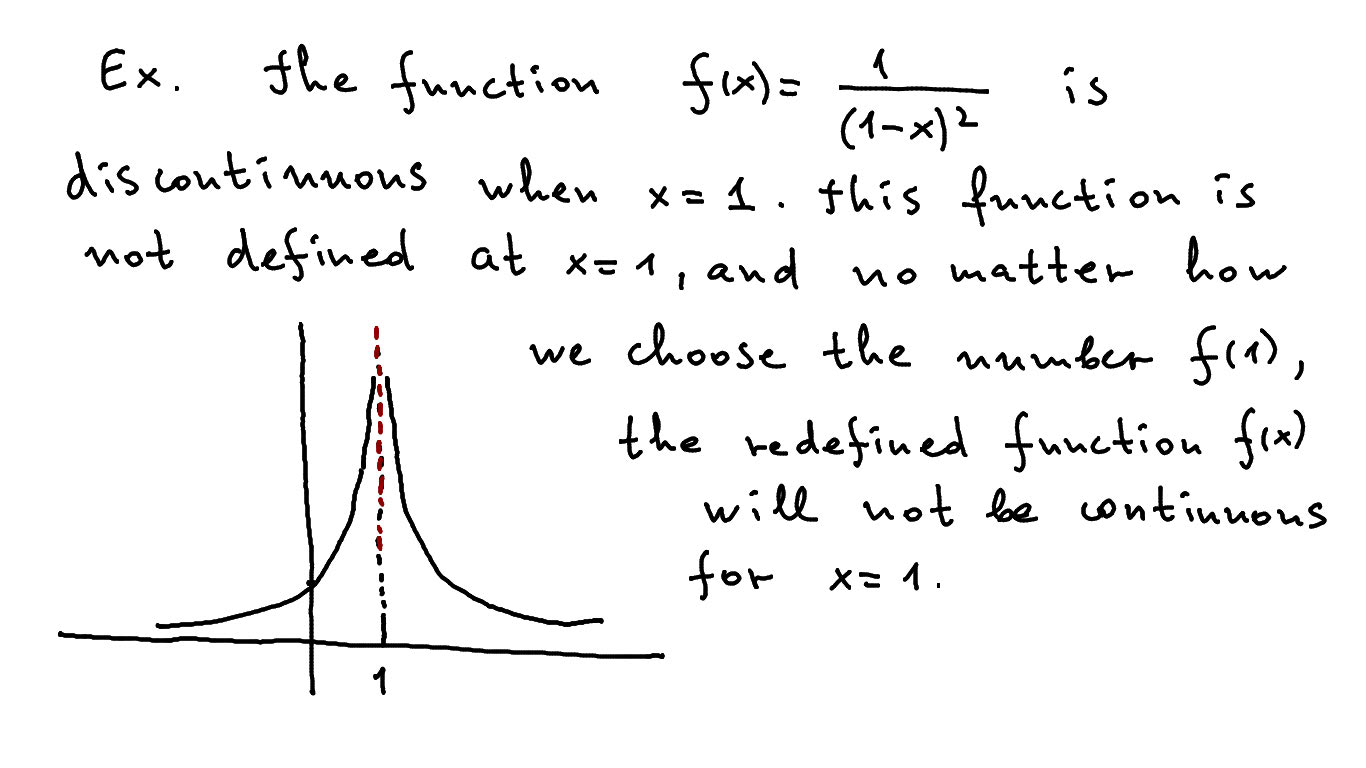 Ex. The function f(x)= 1/(1-x)² is
discontinuous when x=1. This function is
not defined at x=1, and no matter how
we choose the number f(1),
the redefined function f(x)
will not be continuous
for x=1.
1